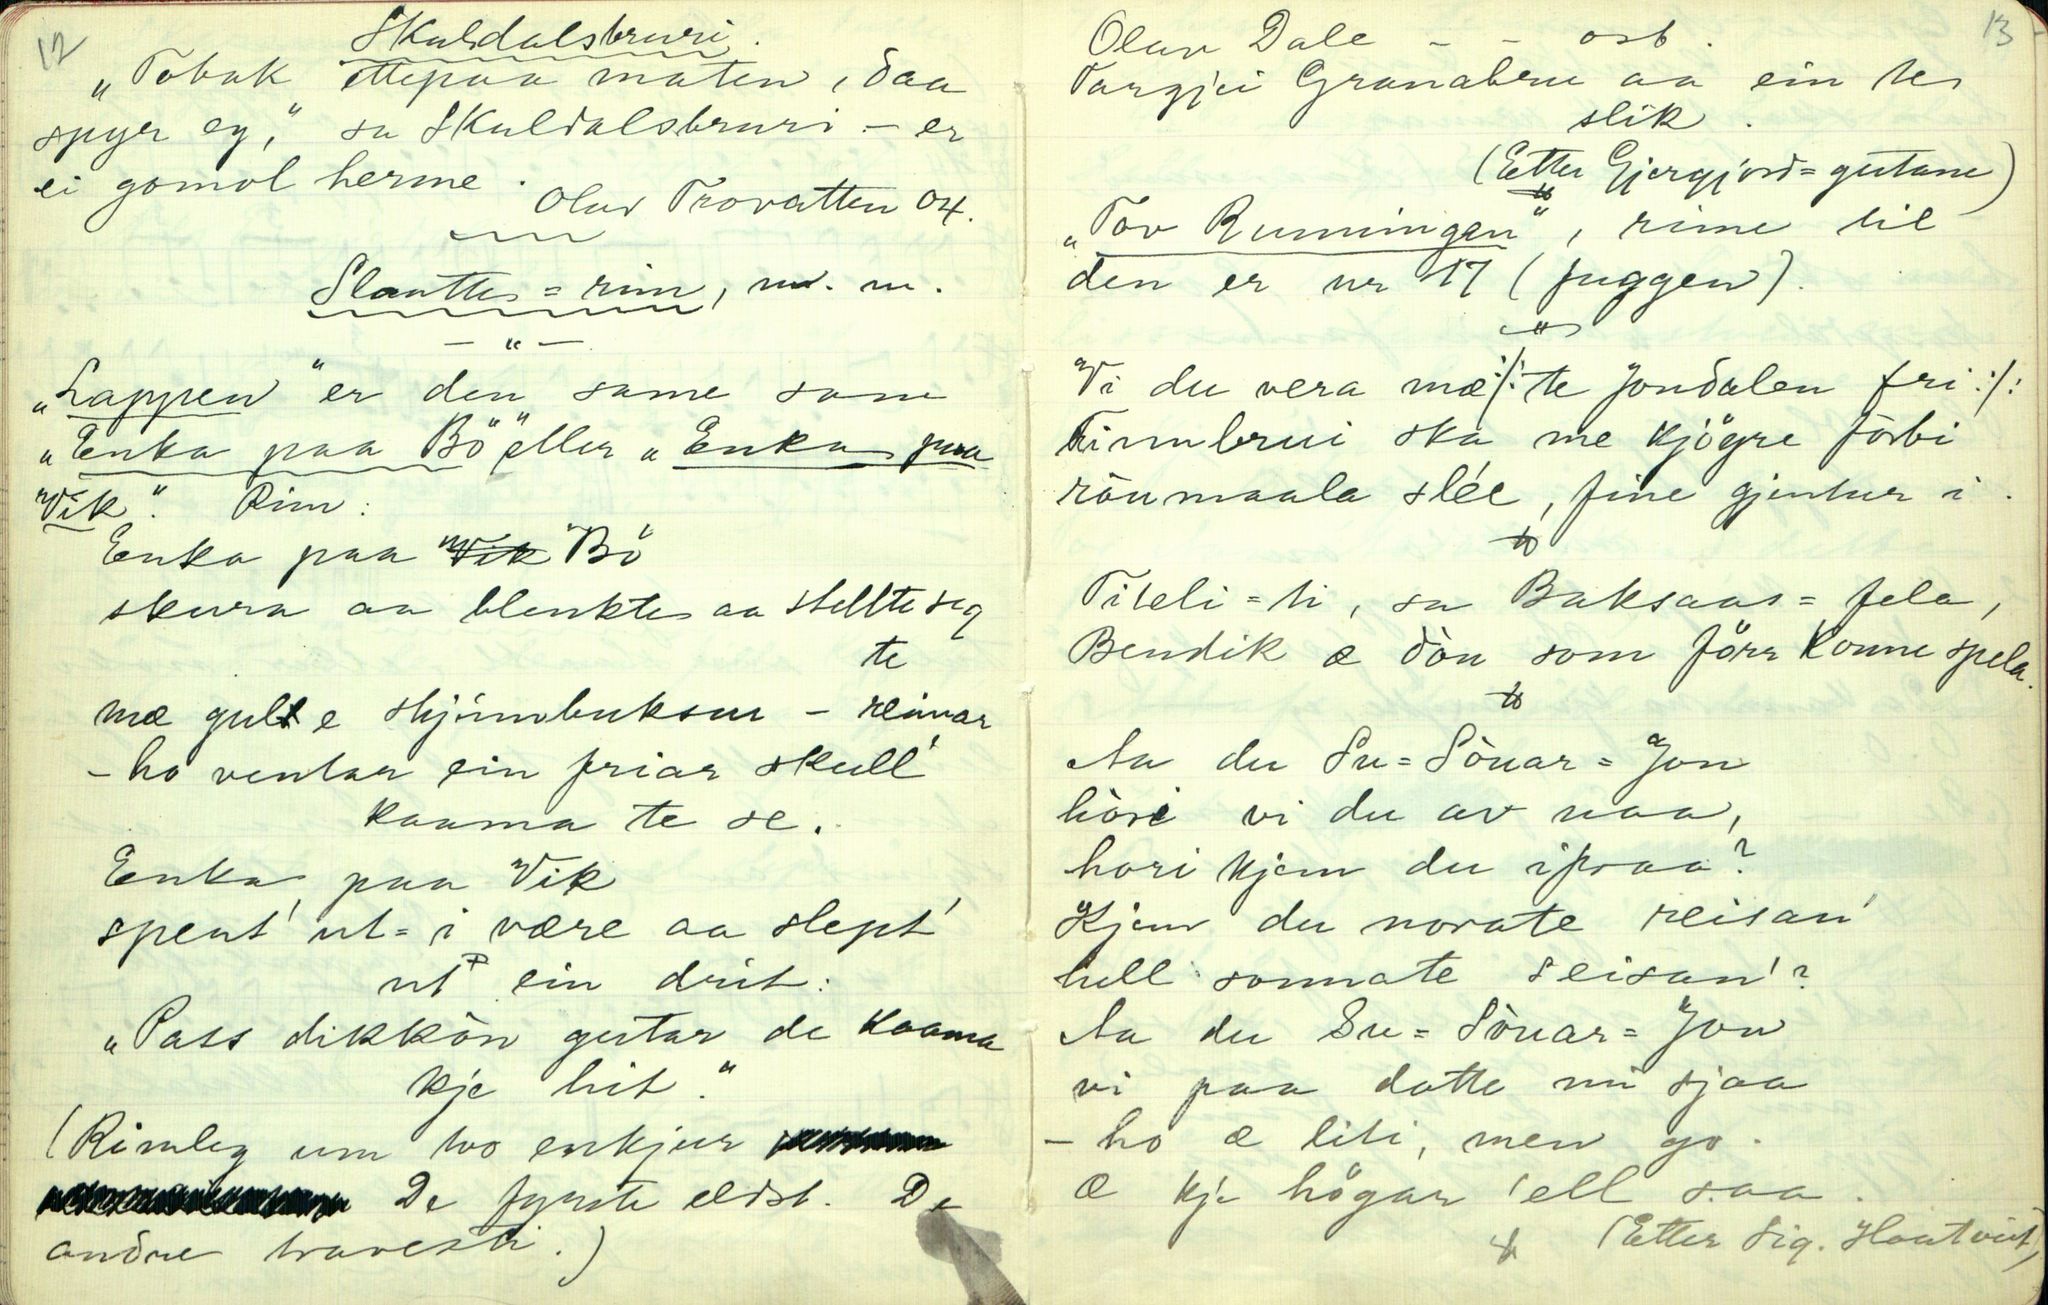 12
Skuldalsbruri.
„Tobak ettepaa maten, daa
spyr eg," sa Skuldalsbruri – er
ei gomol herme.
Olav Trovatten 04.
Slaatte=rim, m. m.
– " –
„Lappen" er den same som
„Enka paa Bö" eller „Enka paa
Vik". Rim:
Enka paa Vik Bö
skura aa blenkte aa stellte seg
te
mæ gule skjinnbuksur – reimar
– ho ventar ein friar skull'
kaama te se.
Enka paa Vik
spent' ut= i være aa slept'
ut ein drit:
„Pass dikkòn gutar de kaama
kje hit."
(Rimleg um two enkjur
De fyrste eldst. De
andre travesti.)
13
Olav Dale – – ost.
Targjei Granabru aa ein te
slik.
(Etter Gjergjord=gutane)
„Tov Rumningen", rime til
den er nr 17 (fuggen).
"
Vi du vera mæ :/: te Jondalen fri :/:
Finnbrui ska me kjögre forbi
ròumaala slée, fine gjentur i.
Titeli=ti, sa Baksaas=fela,
Bendik æ dòn som förr konne spela.
Aa du Su=Sònar=Jon
hòri vi du av naa,
hori kjem du ifraa?
Kjem du norate reisan'
hell sonnate seisan'?
Aa du Su=Sònar=Jon
vi paa dotte mi sjaa
– ho æ liti, men go.
Æ kje högar 'ell saa.
(Etter Sig.